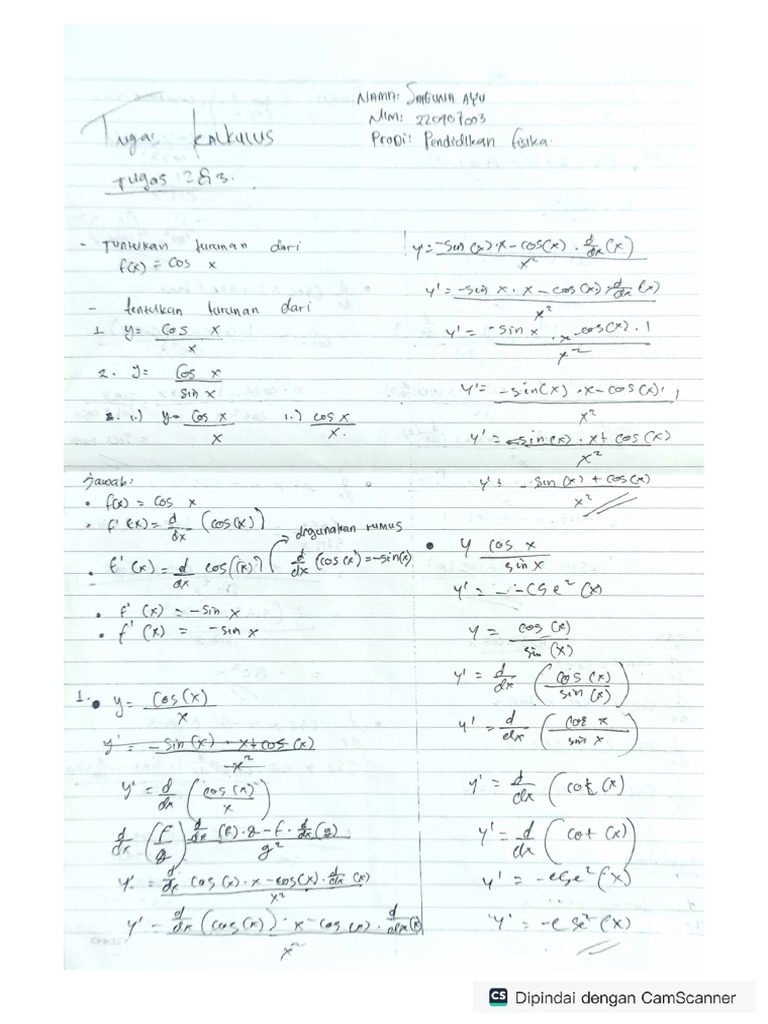 Tugas Kalkulus
NAMA: SABUNA AYU
NIM: 220407003
PRODI: Pendidikan Fisika.
Tugas : 2 & 3.
- Tuntukan turunan dari
f(x) = cos x
- tentukan turunan dari
1. y = cos x / x
2. y = cos x / sin x
2. 1.) y = cos x / x 1.) cos x / x.
jawab:
• f(x) = cos x
• f'(x) = d/dx (cos(x))
• f'(x) = d/dx cos(x) → digunakan rumus d/dx (cos(x) = -sin(x)
• f'(x) = -sin x
• f'(x) = -sin x
1. • y = cos(x) / x
y' = -sin(x) · x + cos(x) / -x²
y' = d/dx (cos(x) / x)
d/dx (f/g) d/dx (f) · g - f · d/dx (g) / g²
y' = d/dx cos(x) · x - cos(x) · d/dx (x) / x²
y' = d/dx (cos(x)) · x - cos(x) · d/dx (x) / x²
y' = -sin(x) · x - cos(x) · d/dx (x) / x²
y' = -sin x · x - cos(x) · d/dx (x) / x²
y' = -sin x · x - cos(x) · 1 / x²
y' = -sin(x) · x - cos(x) · 1 / x²
y' = -sin(x) · x + cos(x) / x²
y' = -sin(x) + cos(x) / x²
• y cos x / sin x
y' = -csc² (x)
y = cos(x) / sin(x)
y' = d/dx (cos(x) / sin(x))
y' = d/dx (cos x / sin x)
y' = d/dx (cot(x)
y' = d/dx (cot(x)
y' = -csc² (x)
y' = -csc² (x)
CS Dipindai dengan CamScanner